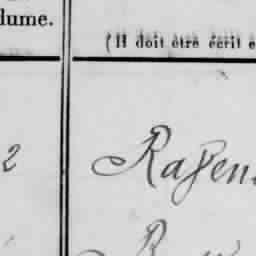 dume.
(Il doit être écrit e
2
Ragen